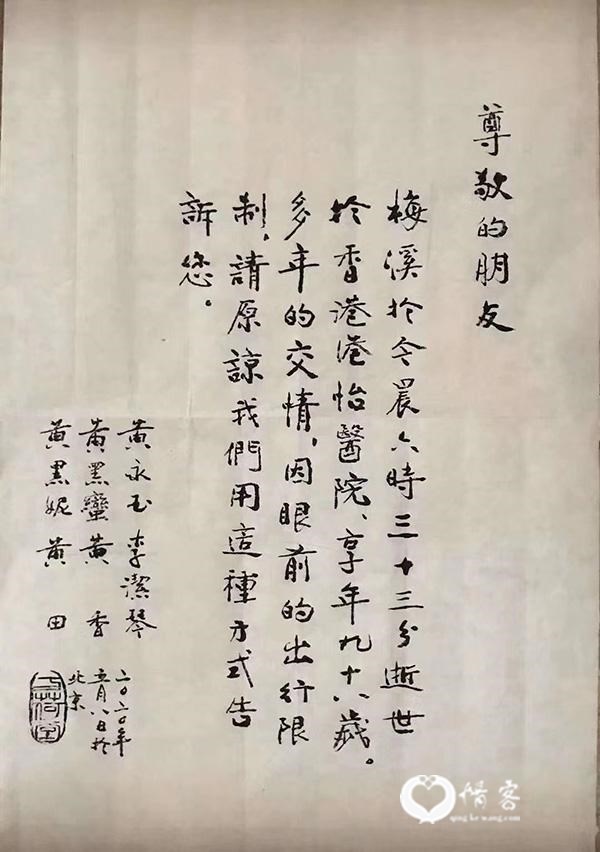 尊敬的朋友
梅溪於今晨六時三十三分逝世
於香港港怡醫院、享年九十八歲。
多年的交情，因眼前的出行限
制，請原諒我們用這種方式告
訴您。
黃永玉 李潔琴
黃黑蠻 黃香
黃黑妮 黃田
二〇二〇年
五月八日於
北京
情客
qing ke wang.com